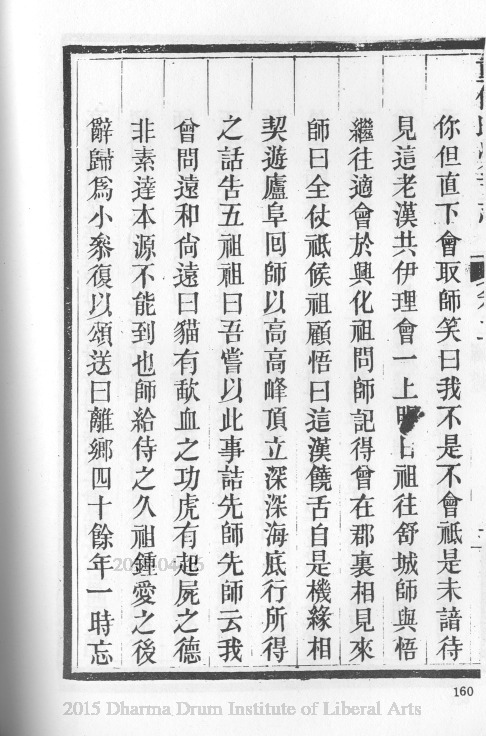 你但直下會取師笑曰我不是不會祇是未諳待
見這老漢共伊理會一上明日祖往舒城師與悟
繼往適會於興化祖問師記得曾在郡裏相見來
師曰全仗祗候祖顧悟曰這漢饒舌自是機緣相
契遊廬阜回師以高高峰頂立深深海底行所得
之話告五祖祖曰吾嘗以此事詰先師先師云我
曾問遠和尚遠曰貓有歃血之功虎有起屍之德
非素達本源不能到也師給侍之久祖鍾愛之後
辭歸為小叅復以頌送曰離鄉四十餘年一時忘
160
2015 Dharma Drum Institute of Liberal Arts